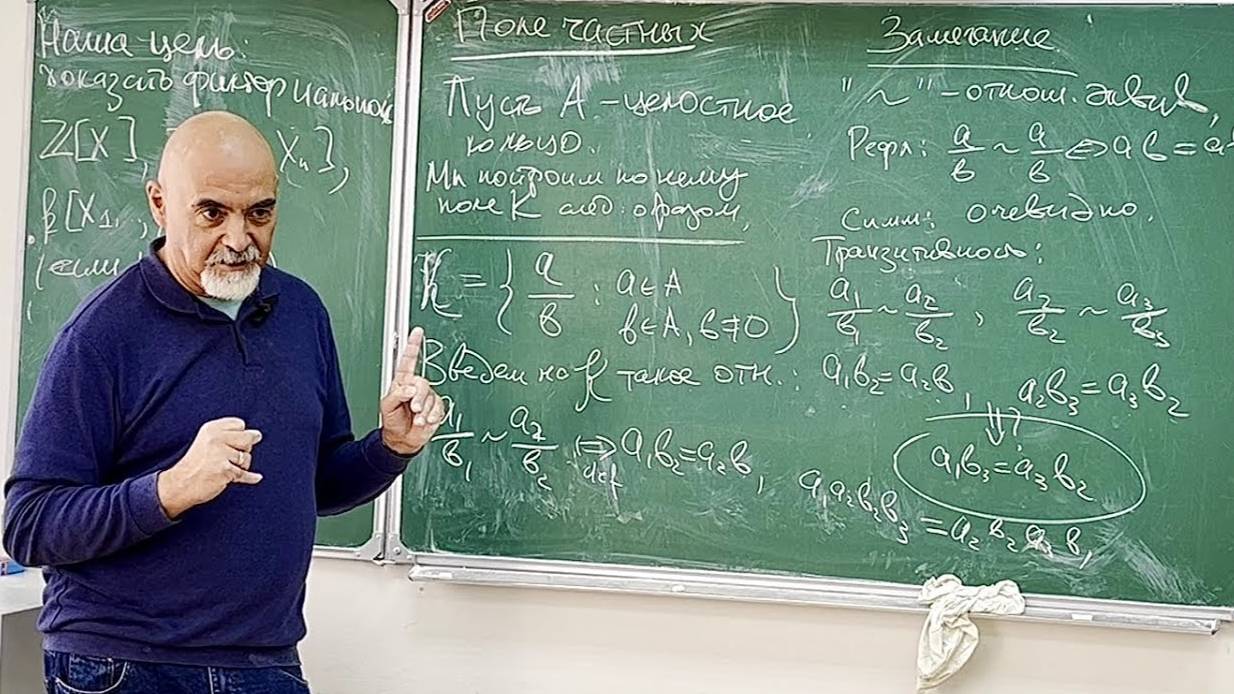 Наша цель:
доказать факториальность
Z[X]
X_n],
k[X_1,
(если
Поле частных
Пусть A - целостное
кольцо.
Мы построим по нему
поле K след. образом,
K = { a/b : a ∈ A
b ∈ A, b ≠ 0 }
Введем на K такое отн.:
a_1/b_1 ~ a_2/b_2 ⇔ a_1b_2 = a_2b,
def
Замечание
"~" - отнош. эквив,
Рефл: a/b ~ a/b ⇔ ab = a
Симм: очевидно.
Транзитивность:
a_1/b_1 ~ a_2/b_2 , a_2/b_2 ~ a_3/b_3
a_1b_2 = a_2b_1 a_2b_3 = a_3b_2
⇓?
a_1b_3 = a_3b_2
a_1a_2b_2b_3 = a_2b_2 b_1